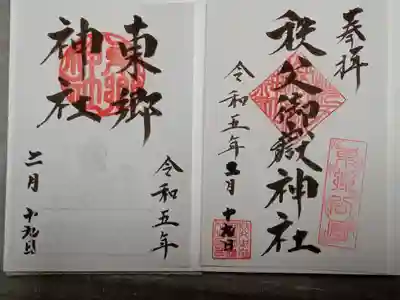 奉拝
秩父御嶽神社
令和五年二月十九日
東郷
神社
令和五年
二月十九日